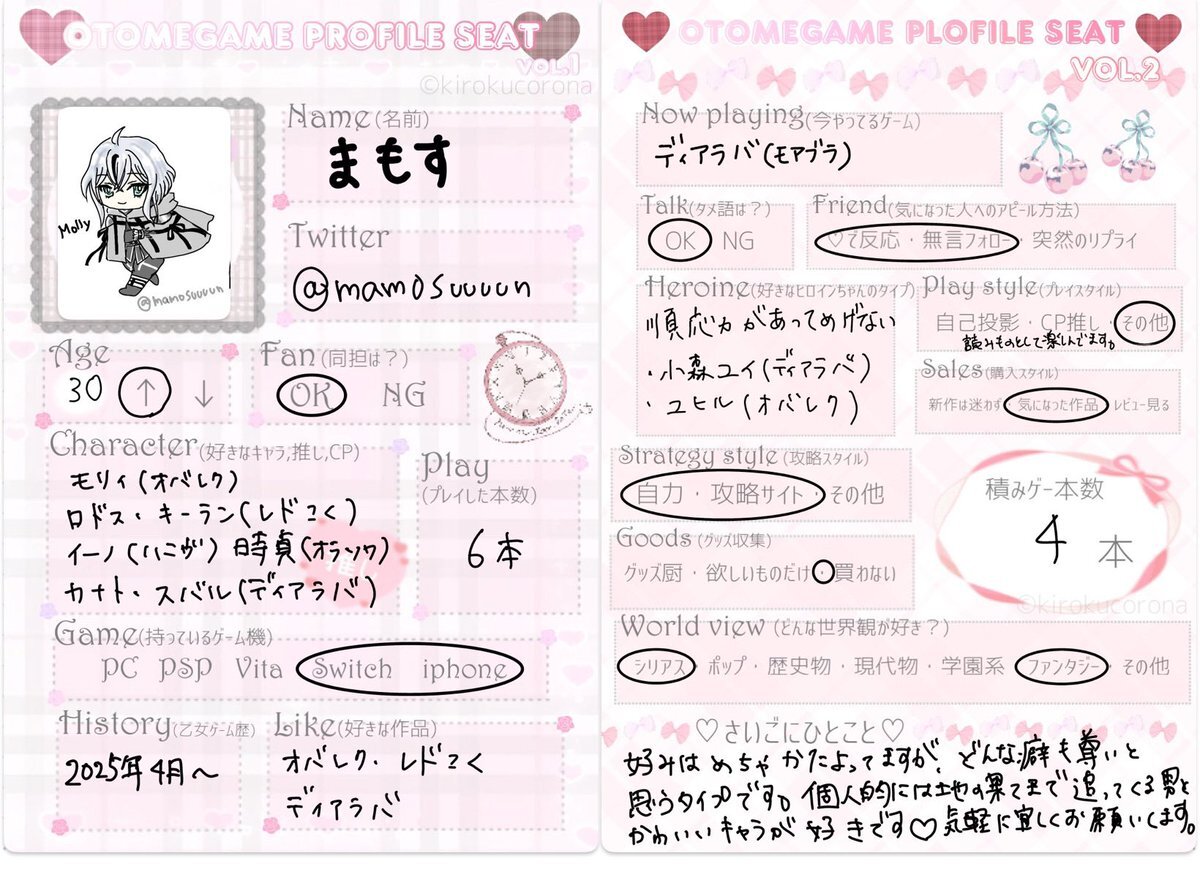 OTOMEGAME PROFILE SEAT
VOL.1
©kirokucorona
Name(名前)
まもす
Molly
@mamosuuuun
Twitter
@mamosuuuun
Age
30 ↑ ↓
Fan(同担は?)
OK NG
Character(好きなキャラ,推し,CP)
モリィ(オバレク)
ロドス・キーラン(レドこく)
イーノ(ハこガ) 時貞(オランワ)
カナト・スバル(ディアラバ)
推し
Play
(プレイした本数)
6本
Game(持っているゲーム機)
PC PSP Vita Switch iphone
History(乙女ゲーム歴)
2025年4月〜
Like(好きな作品)
オバレク・レドこく
ディアラバ
OTOMEGAME PLOFILE SEAT
VOL.2
Now playing(今やってるゲーム)
ディアラバ(モアブラ)
Talk(タメ語は?)
OK NG
Friend(気になった人へのアピール方法)
♡で反応・無言フォロー・突然のリプライ
Heroine(好きなヒロインちゃんのタイプ)
順応力があってめげない
・小森ユイ(ディアラバ)
・ユヒル(オバレク)
Play style(プレイスタイル)
自己投影・CP推し・その他
読みものとして楽しんでます。
Sales(購入スタイル)
新作は迷わず・気になった作品・レビュー見る
Strategy style(攻略スタイル)
自力・攻略サイト・その他
Goods(グッズ収集)
グッズ厨・欲しいものだけ・買わない
積みゲー本数
4本
©kirokucorona
World view(どんな世界観が好き?)
シリアス・ポップ・歴史物・現代物・学園系・ファンタジー・その他
♡さいごにひとこと♡
好みはめちゃかたよってますが、どんな癖も尊いと
思うタイプです。個人的には地の果てまで追ってくる男と
かわいいキャラが好きです♡気軽に宜しくお願いします。